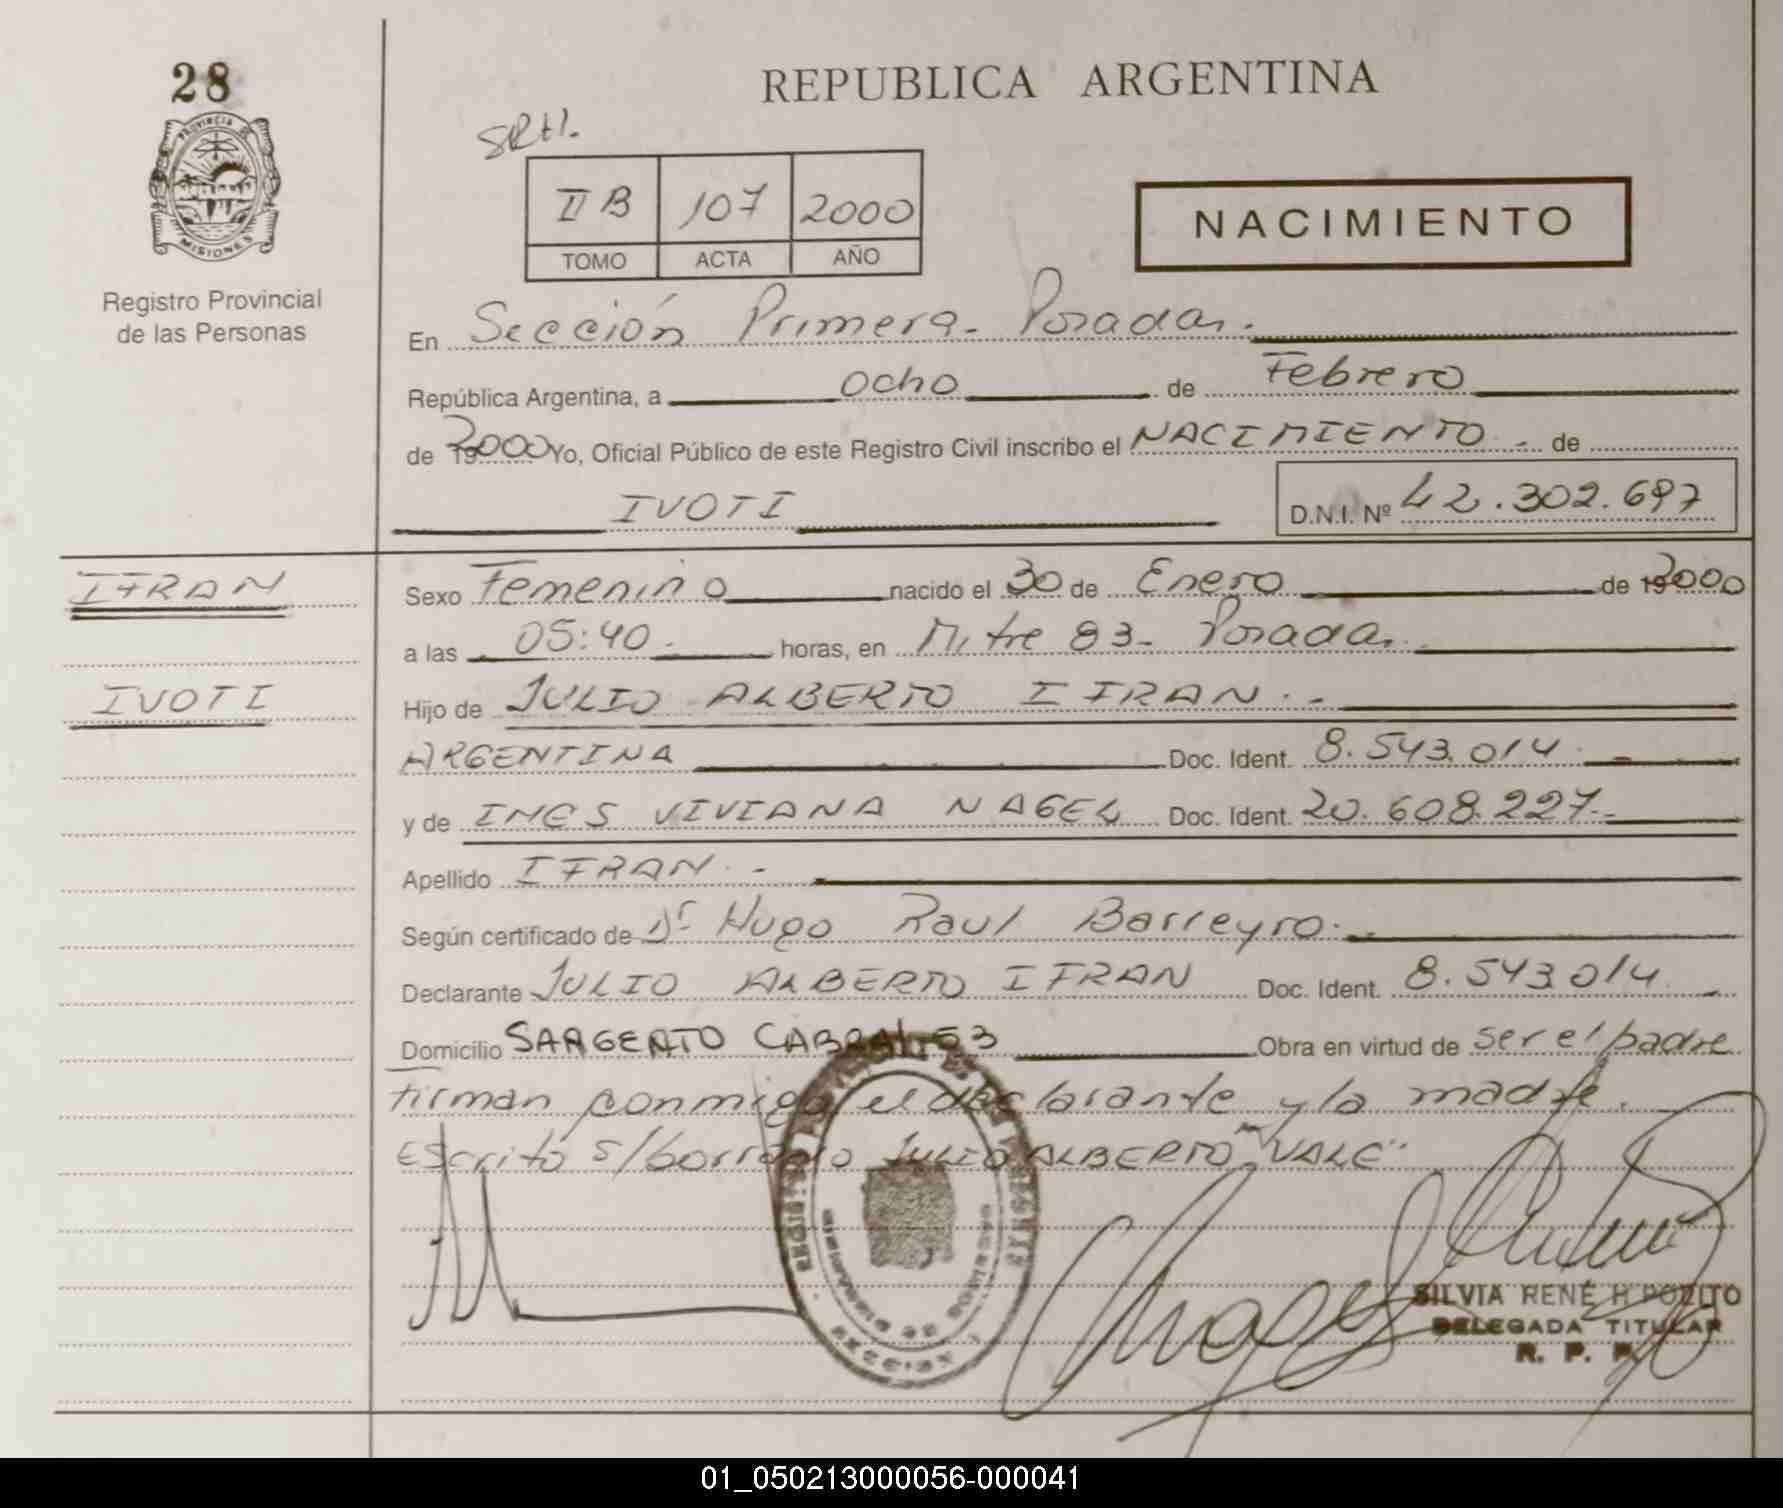 28
REPUBLICA ARGENTINA
PROVINCIA DE
MISIONES
II B 107 2000
TOMO ACTA AÑO
NACIMIENTO
Registro Provincial
de las Personas
En Sección Primera - Posadas.
República Argentina, a ocho de Febrero
de 2000 Yo, Oficial Público de este Registro Civil inscribo el NACIMIENTO.- de
IVOTI D.N.I. Nº 42.302.697
IFRAN
Sexo Femenino nacido el 30 de Enero de 2000
a las 05:40.- horas, en Mitre 83- Posadas.
IVOTI
Hijo de JULIO ALBERTO IFRAN.-
ARGENTINA Doc. Ident. 8.543.014.-
y de INES VIVIANA NAGEL Doc. Ident. 20.608.227.-
Apellido IFRAN.-
Según certificado de Dr Hugo Raul Barreyro.-
Declarante JULIO ALBERTO IFRAN Doc. Ident. 8.543.014
Domicilio SARGENTO CABRAL 53 Obra en virtud de ser el padre
firman conmigo el declarante y la madre.
Escrito s/borrado JULIO ALBERTO "VALE"
SILVIA RENÉ HIPOLITO
DELEGADA TITULAR
R. P. P.
01_050213000056-000041